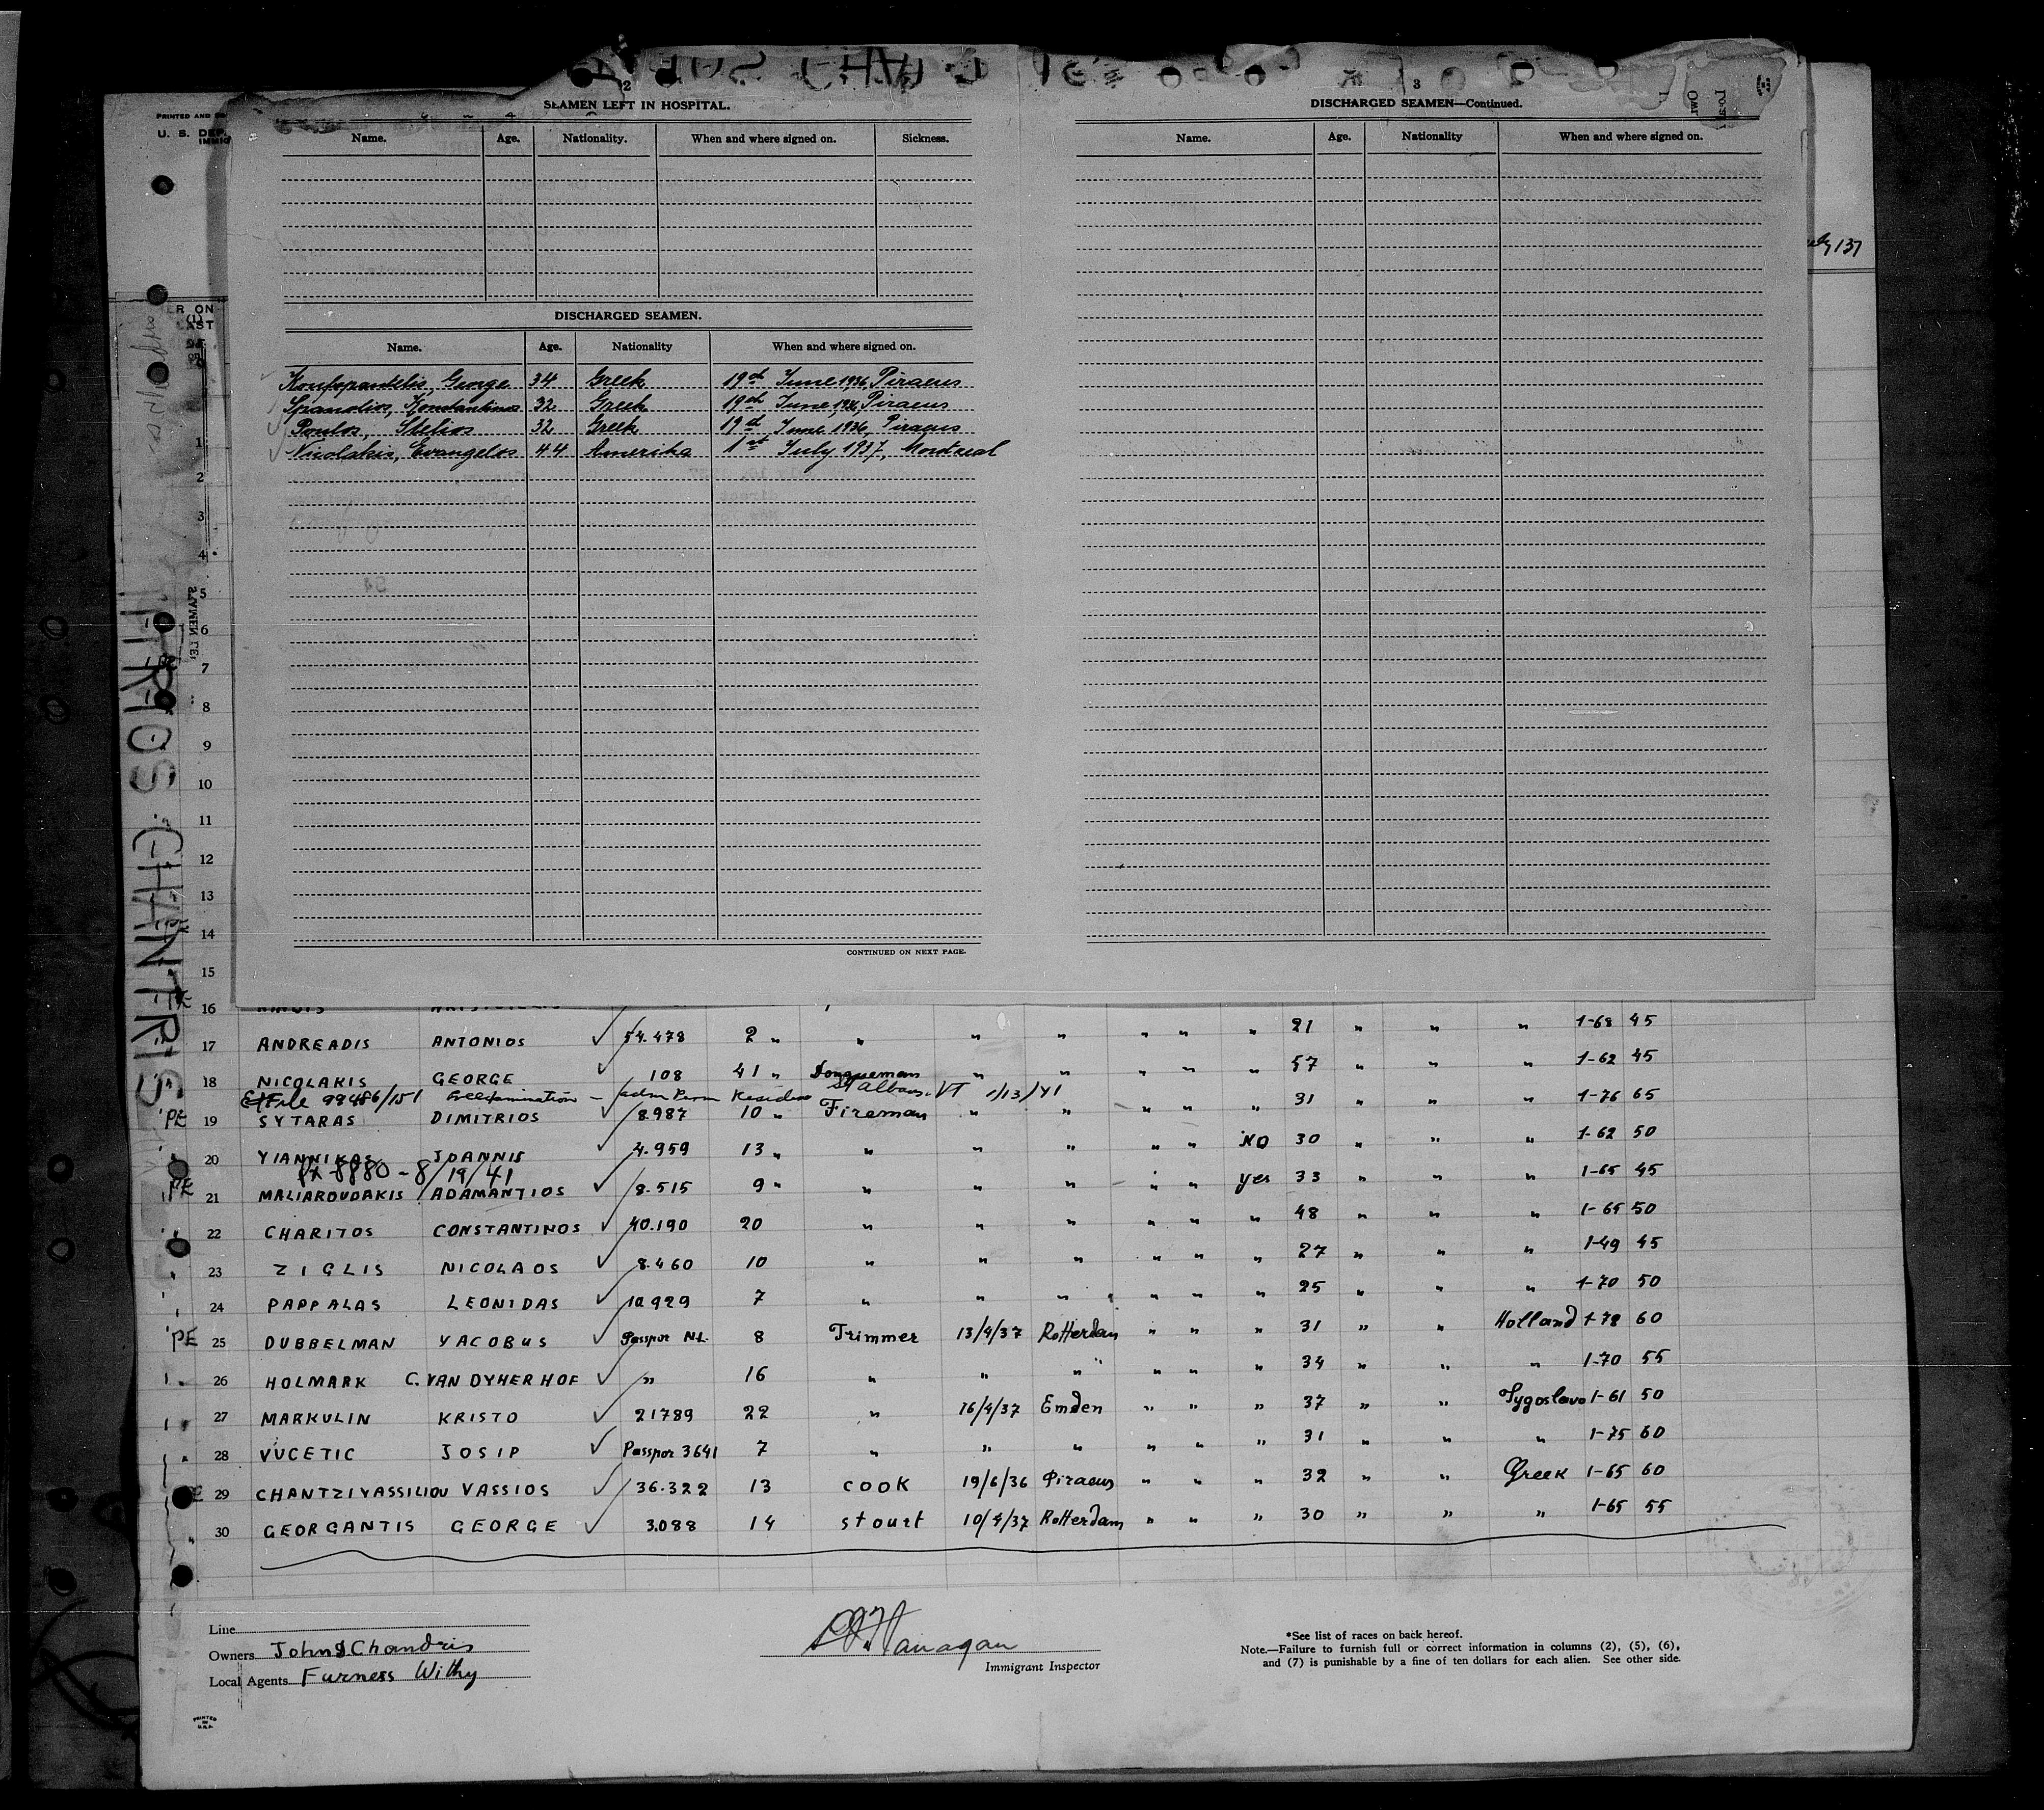 2
SEAMEN LEFT IN HOSPITAL.
Name. Age. Nationality. When and where signed on. Sickness.
DISCHARGED SEAMEN.
Name. Age. Nationality When and where signed on.
George 34 Greek 19th June 1936, Piraeus
Spanolios, Konstantinos 32 Greek 19th June 1936, Piraeus
Poulos, Stelios 32 Greek 19th June 1936, Piraeus
Nicolakis, Evangelos 44 Amerika 1st July 1937, Montreal
CONTINUED ON NEXT PAGE.
3
DISCHARGED SEAMEN—Continued.
Name. Age. Nationality When and where signed on.
PRINTED AND
U. S. DEP
IMMIG
ER ON
(1)
LAST
1
2
3
4
5
6
7
8
9
10
11
12
13
14
15
16
17 ANDREADIS ANTONIOS ✓ 54.478 2 " " " " " " " 21 " " " 1-68 45
18 NICOLAKIS GEORGE ✓ 108 41 " Donqueman " " " " " 57 " " " 1-62 45
File 99486/151 Preexamination - adm Perm Residence St Albans. VT 1/13/41
PE 19 SYTARAS DIMITRIOS ✓ 8.987 10 " Fireman " " " " " 31 " " " 1-76 65
20 YIANNIKAS IOANNIS ✓ 4.959 13 " " " " " " NO 30 " " " 1-62 50
8880 - 8/19/41
PE 21 MALIAROUDAKIS ADAMANTIOS ✓ 8.515 9 " " " " " " yes 33 " " " 1-65 45
22 CHARITOS CONSTANTINOS ✓ 40.190 20 " " " " " " 48 " " " 1-65 50
23 ZIGLIS NICOLAOS ✓ 8.460 10 " " " " " " 27 " " " 1-49 45
24 PAPPALAS LEONIDAS ✓ 10.929 7 " " " " " " 25 " " " 1-70 50
PE 25 DUBBELMAN YACOBUS ✓ Passpor NL. 8 Trimmer 13/4/37 Rotterdam " " " 31 " " Holland 1-78 60
26 HOLMARK C. VAN DYHERHOF ✓ " 16 " " " " " " 34 " " " 1-70 55
27 MARKULIN KRISTO ✓ 21789 22 " 16/4/37 Emden " " " 37 " " Jygoslavo 1-61 50
28 VUCETIC JOSIP ✓ Passpor 3641 7 " " " " " " 31 " " " 1-75 60
29 CHANTZIVASSILIOU VASSIOS ✓ 36.322 13 COOK 19/6/36 Piraeus " " " 32 " " Greek 1-65 60
30 GEORGANTIS GEORGE ✓ 3.088 14 stourt 10/4/37 Rotterdam " " " 30 " " " 1-65 55
Line
Owners John D Chandris
Local Agents Furness Withy
Immigrant Inspector
*See list of races on back hereof.
Note.—Failure to furnish full or correct information in columns (2), (5), (6),
and (7) is punishable by a fine of ten dollars for each alien. See other side.
PRINTED
IN
U.S.A.